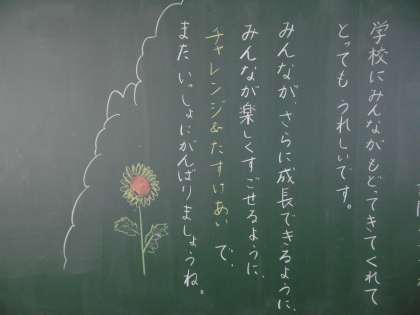 学校にみんながもどってきてくれて
とっても うれしいです。
みんなが、さらに成長できるように、
みんなが楽しくすごせるように、
チャレンジ&たすけあい で、
また いっしょにがんばりましょうね。